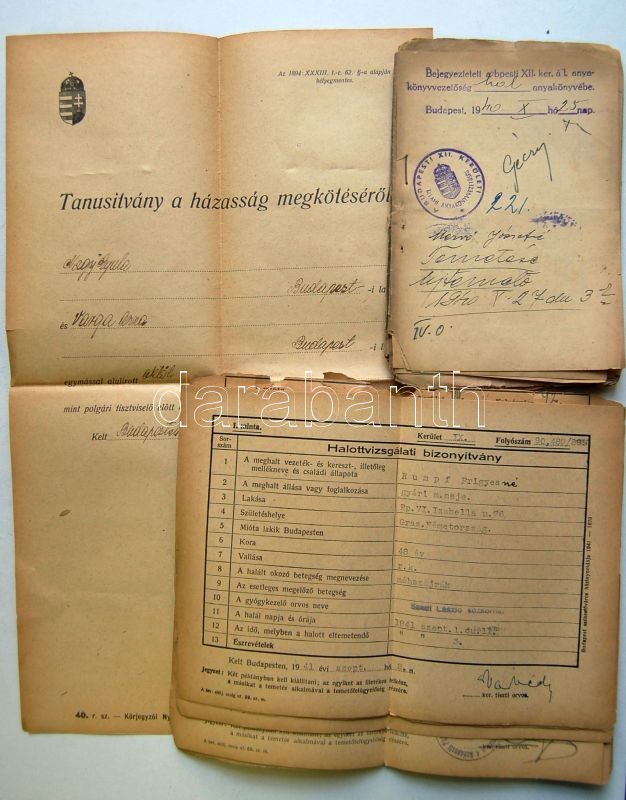 Az 1894: XXXIII. t.-c. 62. §-a alapján
bélyegmentes.
Tanusitvány a házasság megkötéséről
Nagy Gyula
Budapest -i la
és Varga
Budapest -i l
egymással alulirott
mint polgári tisztviselő előtt
Kelt Budapesten
40. r. sz. — Körjegyzői Ny
Bejegyeztetett a bpesti XII. ker. áll. anya-
könyvvezetőség hal. anyakönyvébe.
Budapest, 1940 X hó 25 nap.
A BUDAPESTI XII. KERÜLETI
221.
József
Temetése
1940 X. 27 du 3
IV. o.
darabanth
I. minta.
Kerület IX. Folyószám 90,480/305
Sor-
szám
Halottvizsgálati bizonyítvány
1 A meghalt vezeték- és kereszt-, illetőleg
mellékneve és családi állapota
Rumpf Frigyesné
2 A meghalt állása vagy foglalkozása
gyári m.neje.
3 Lakása
Bp.VI.Izabella u.76
4 Születéshelye
Graz.Németország.
5 Mióta lakik Budapesten
6 Kora
48 év
7 Vallása
r.k.
8 A halált okozó betegség megnevezése
méhszájrák
9 Az esetleges megelőző betegség
10 A gyógykezelő orvos neve
Szent László kórház
11 A halál napja és órája
1941 szept.1.
12 Az idő, melyben a halott eltemetendő
" " 3.
13 Észrevételek
Kelt Budapesten, 1941 évi szept. hó 2.n
Jegyzet: Két példányban kell kiállítani; az egyiket az illetékes lelkész,
a másikat a temetés alkalmával a temetőfelügyelőség részére.
ker. tiszti orvos.
Budapest székesfőváros házinyomdája 1941
a másikat a temetés alkalmával a temetőfelügyelőség részére.
ker. tiszti orvos.